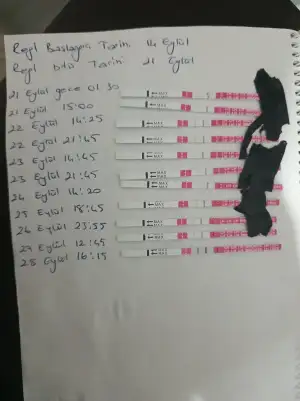 Regl Başlangıç Tarihi 14 Eylül
Regl bitiş Tarihi 21 Eylül
21 Eylül gece 01.30
21 Eylül 15:00
22 Eylül 14:25
22 Eylül 21:45
23 Eylül 14:45
23 Eylül 21:45
24 Eylül 14:20
25 Eylül 18:45
24 Eylül 23:55
27 Eylül 12:45
25 Eylül 16:15